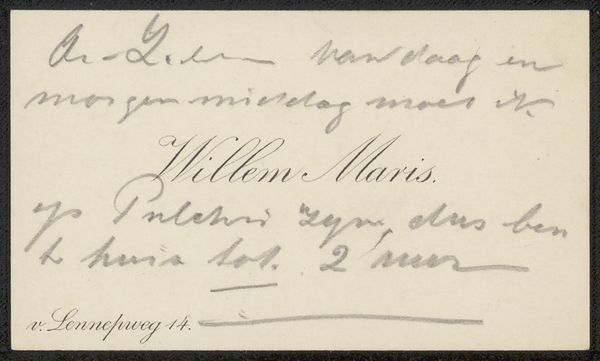 vandaag en
morgen middag moet ik
Willem Maris.
op Pulchri zyn, dus ben
t huis tot 2 uur
v. Lennepweg 14.